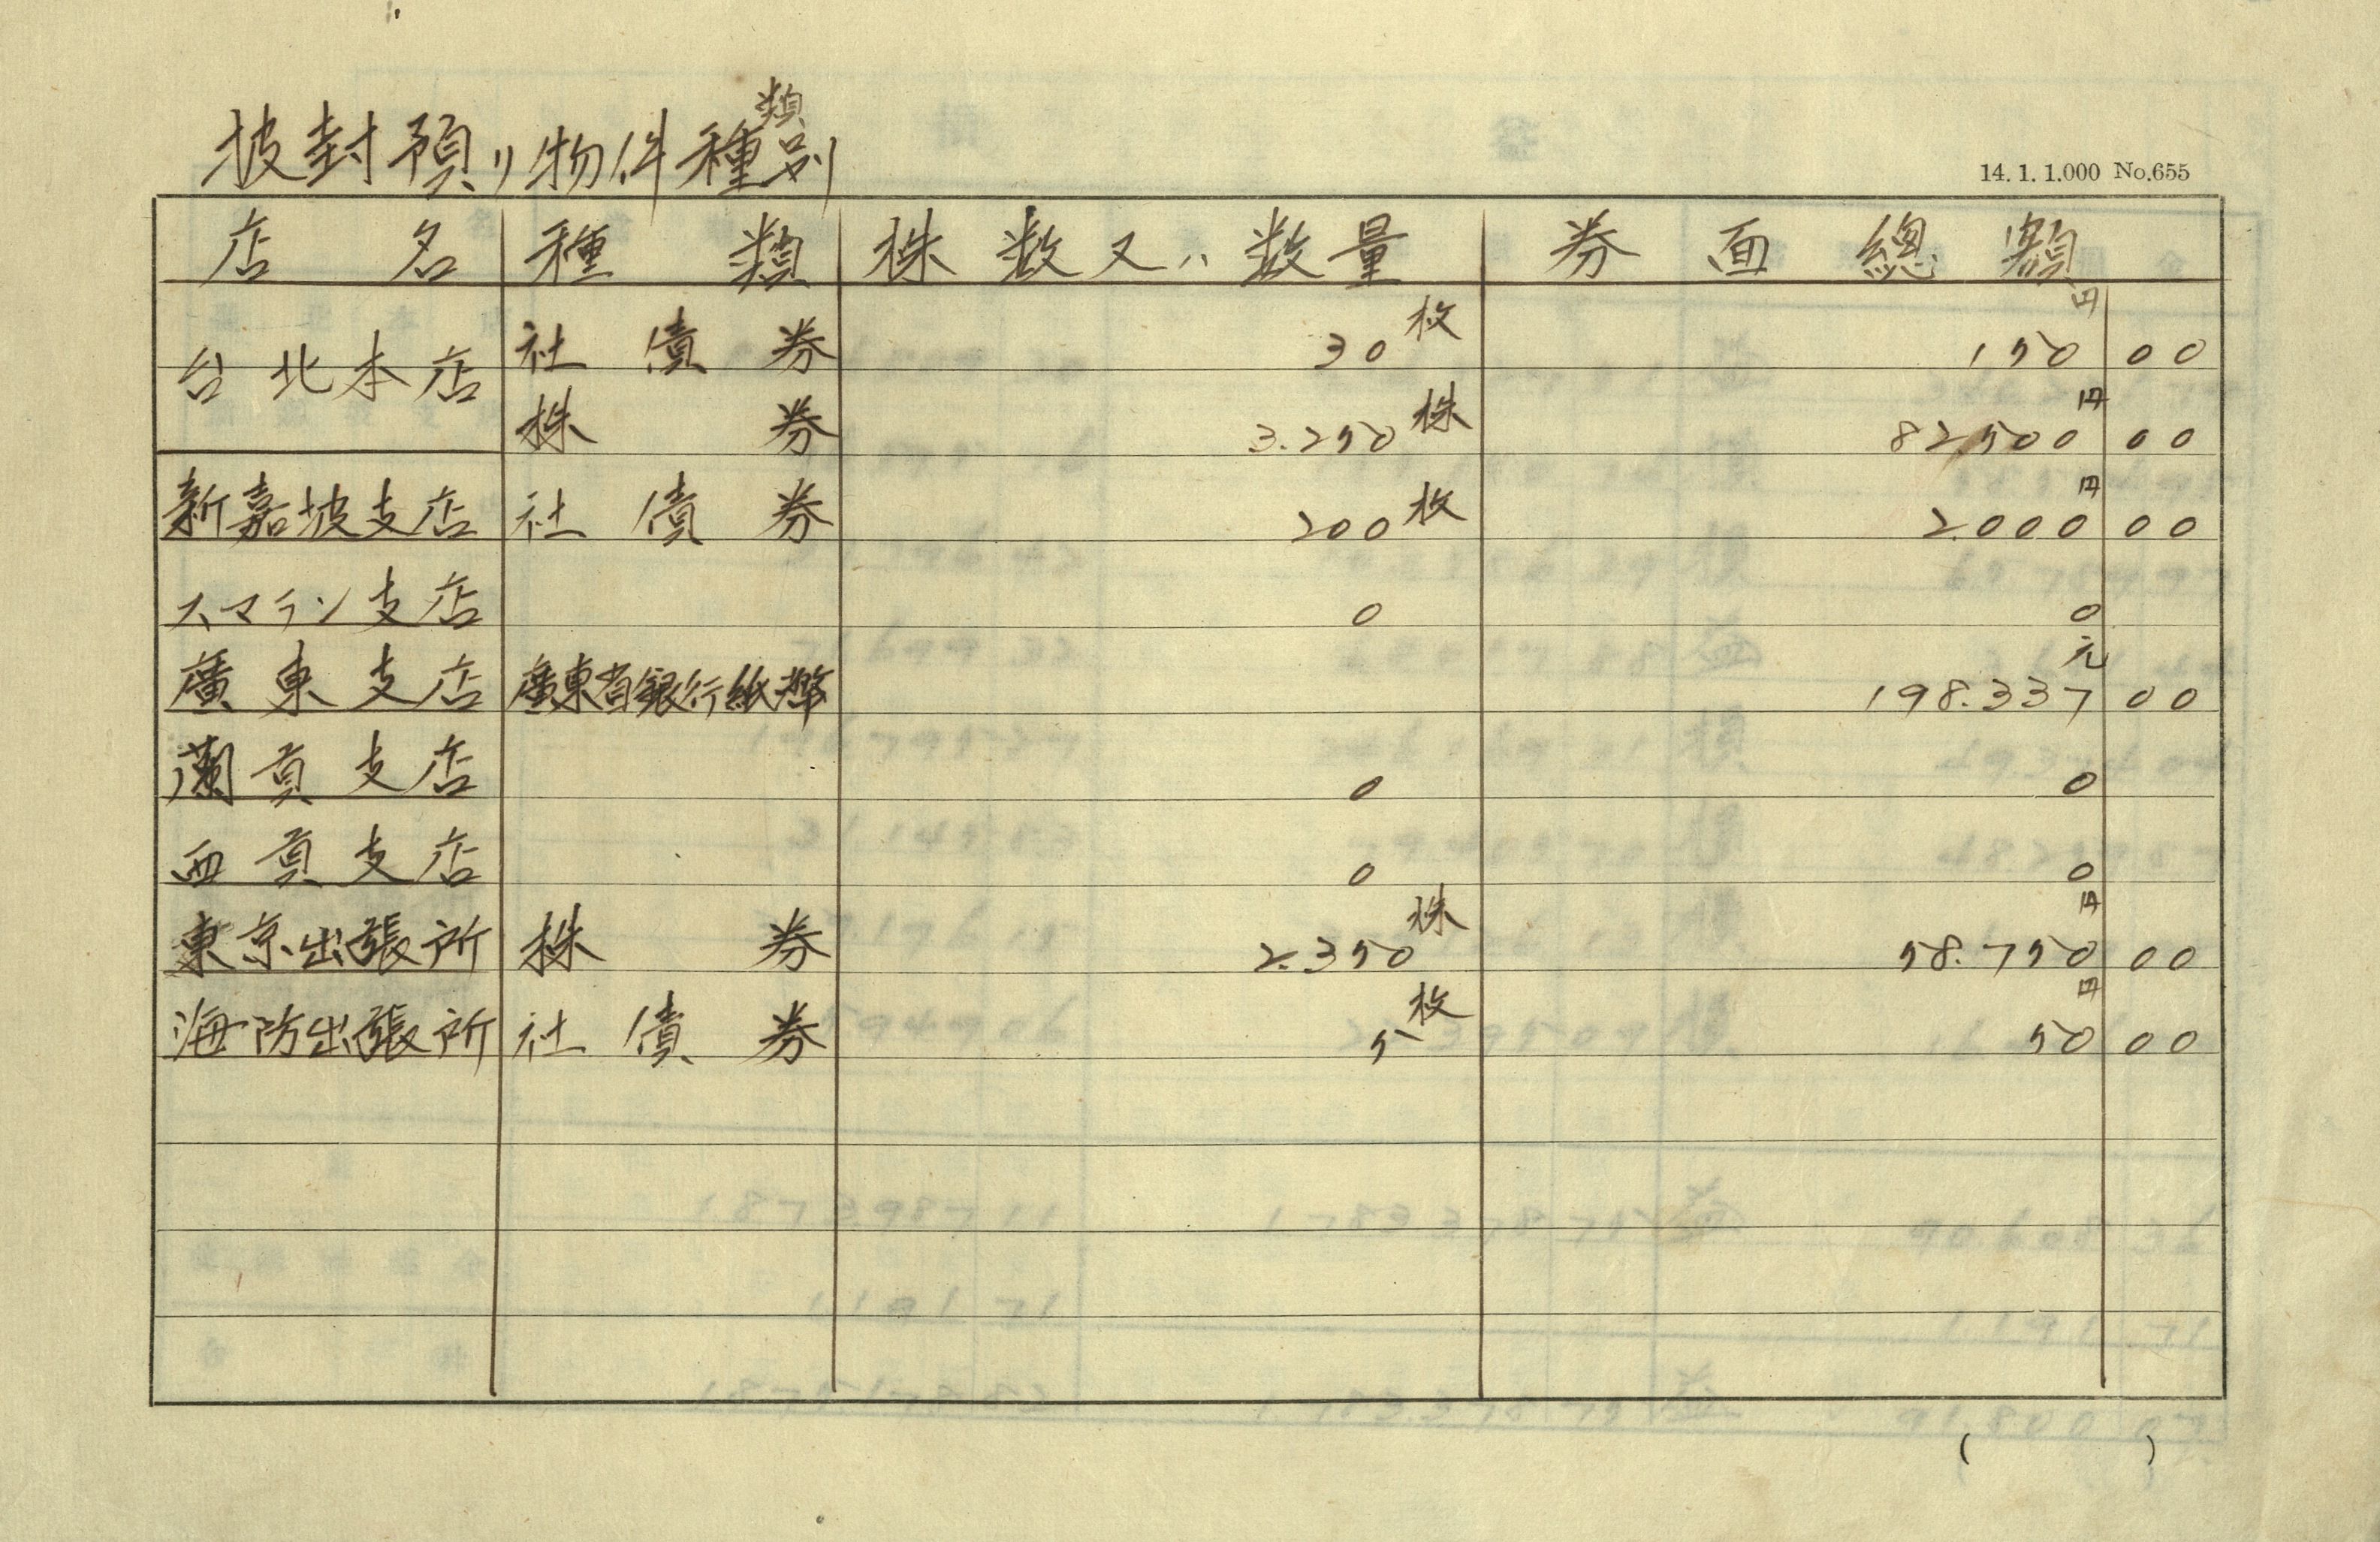 披封預リ物件種類別
14. 1. 1.000 No.655
店名 種類 株数又ハ数量 券面總額
台北本店 社債券 30枚 150円00
株券 3.250株 82,500円00
新嘉坡支店 社債券 200枚 2.000円00
スマラン支店 0 0
廣東支店 廣東省銀行紙幣 198.337元00
蘭貢支店 0 0
西貢支店 0 0
東京出張所 株券 2.350株 58.750円00
海防出張所 社債券 5枚 50円00
( )